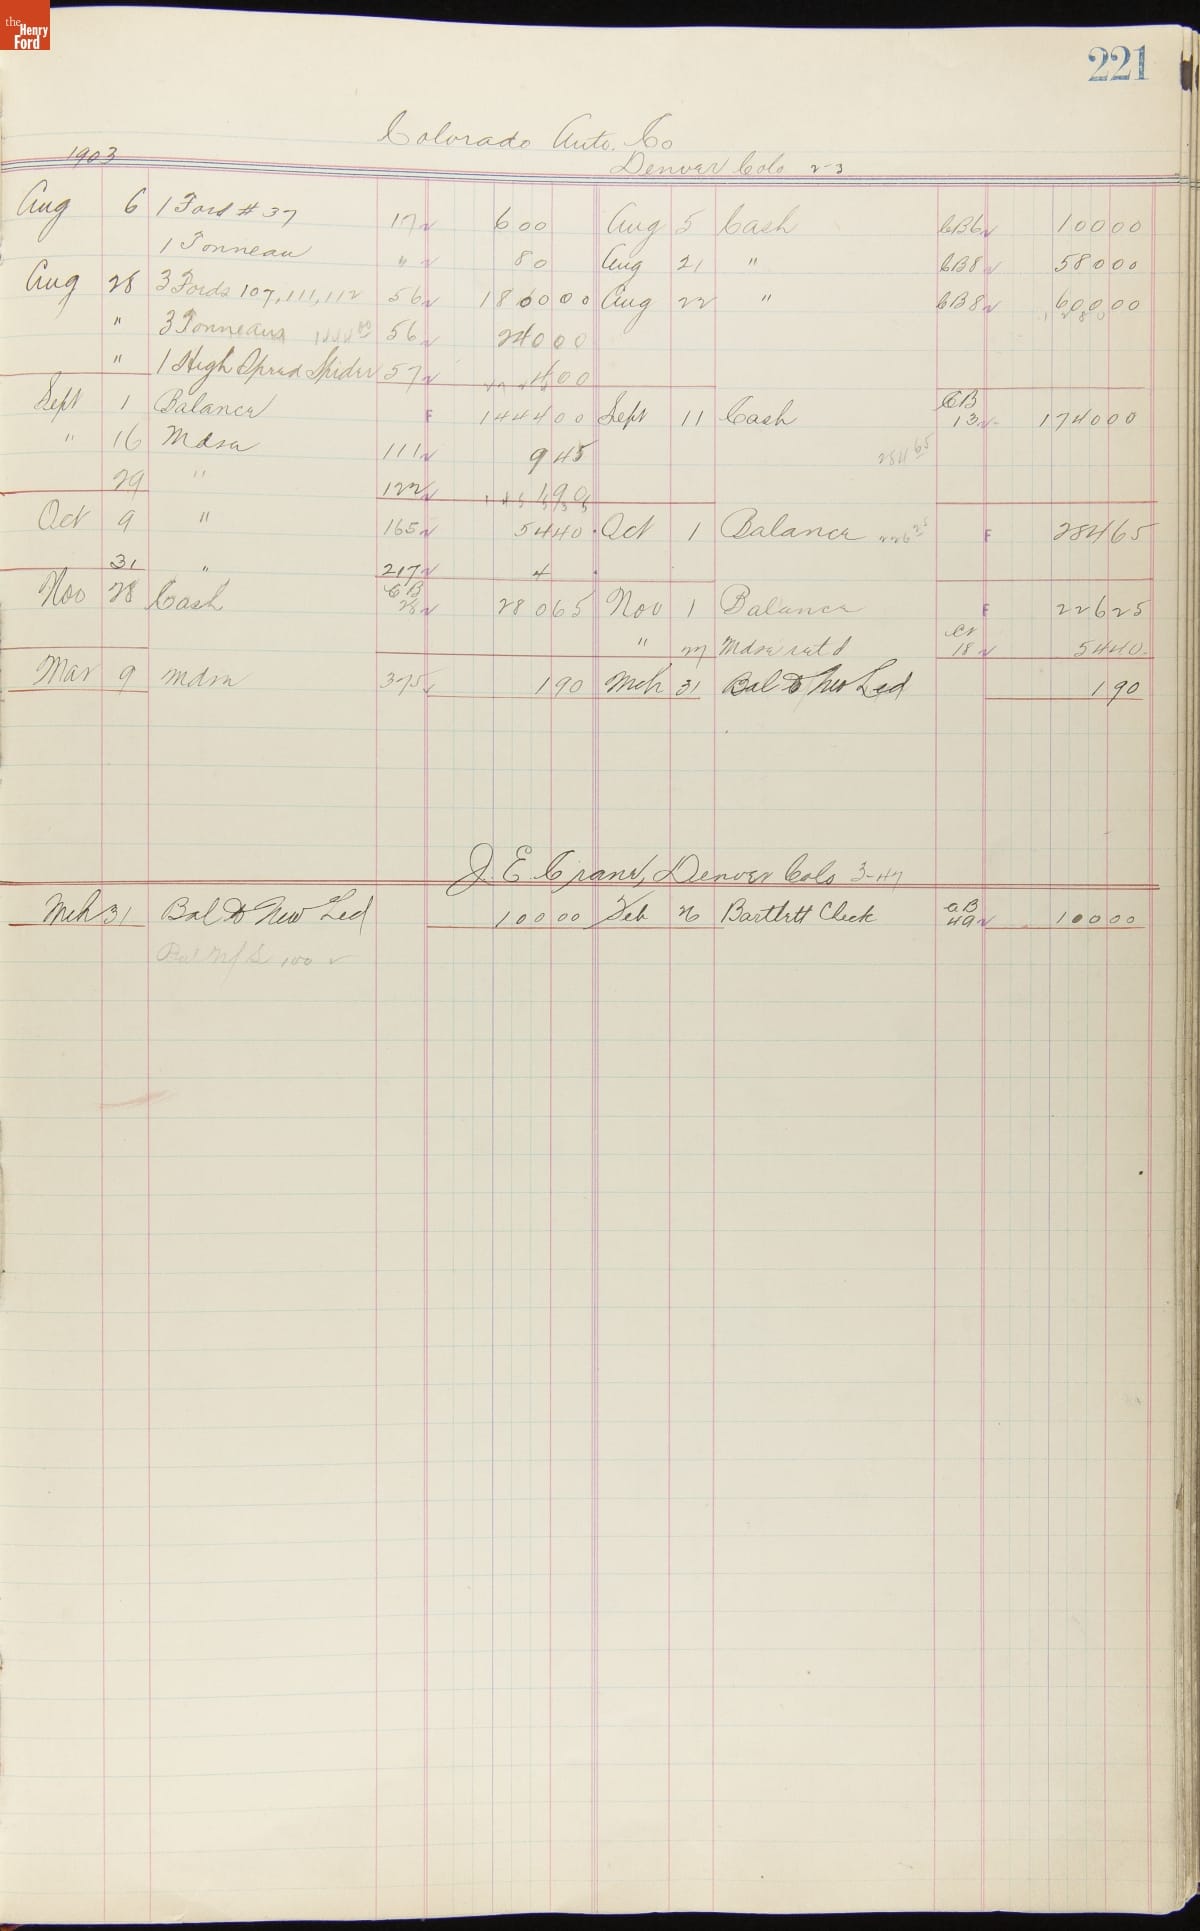 the
Henry
Ford
221
Colorado Auto. Co
1903 Denver Colo 2-3
Aug 6 1 Ford # 37 17 600 Aug 5 Cash CB6 10000
1 Tonneau " 80 Aug 21 " CB8 58000
Aug 28 3 Fords 107, 111, 112 56 180000 Aug 22 " CB8 60000
" 3 Tonneaus 1444 00 56 24000 1280
" 1 High Speed Spider 57 400
Sept 1 Balance F 144400 Sept 11 Cash CB 13 174000
" 16 Mdse 111 945 284 65
29 " 122 190
Oct 9 " 165 5440 Oct 1 Balance 226 25 F 28465
31 " 217 4
Nov 28 Cash CB 28 28065 Nov 1 Balance F 22625
" 27 Mdse ret'd Cr 18 5440
Mar 9 Mdse 375 190 Mch 31 Bal to New Led 190
J. E. Crane, Denver Colo 3-47
Mch 31 Bal to New Led 10000 Feb 26 Bartlett Check CB 49 10000
100